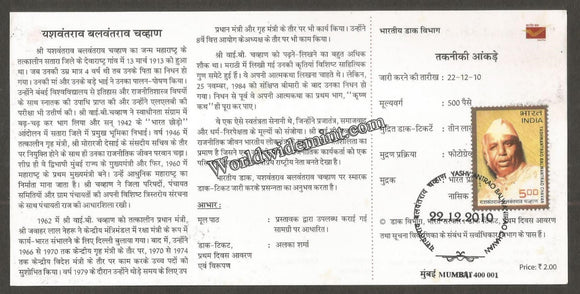 यशवंतराव बलवंतराव चव्हाण
श्री यशवंतराव बलवंतराव चव्हाण का जन्म महाराष्ट्र के
तत्कालीन सतारा जिले के देवाराष्ट्र गांव में 13 मार्च 1913 को हुआ
था। जब उनकी उम्र मात्र 4 वर्ष थी तब उनके पिता का निधन हो
गया। उनकी मां और उनके बड़े भाई ने उनका पालन-पोषण किया।
उन्होंने बंबई विश्वविद्यालय से इतिहास और राजनीतिशास्त्र विषयों
के साथ स्नातक की उपाधि प्राप्त की और उन्होंने एलएलबी की
परीक्षा भी उत्तीर्ण की। श्री वाई.बी. चव्हाण ने स्वाधीनता संग्राम में
बढ़-चढ़ कर भाग लिया और सन् 1942 के "भारत छोड़ो"
आंदोलन में सतारा जिले में प्रमुख भूमिका निभाई। वर्ष 1946 में
तत्कालीन गृह मंत्री, श्री मोरारजी देसाई के संसदीय सचिव के तौर
पर नियुक्ति होने के साथ ही उनका राजनीतिक जीवन परवान चढ़ा।
1960 में
महाराष्ट्र के प्रथम मुख्यमंत्री बने। उन्हें आधुनिक महाराष्ट्र का
निर्माता माना जाता है। श्री चव्हाण ने जिला परिषदों, पंचायत
समितियों और ग्राम पंचायतों की अपनी विशिष्ट त्रिस्तरीय संरचना
के साथ पंचायती राज की आधारशिला रखी।
1962 में श्री वाई.बी. चव्हाण को तत्कालीन प्रधान मंत्री,
श्री जवाहर लाल नेहरू ने केन्द्रीय मंत्रिमंडल में रक्षा मंत्री के रूप में
कार्य-भार संभालने के लिए दिल्ली बुलाया गया। बाद में उन्होंने
1966 से 1970 तक केन्द्रीय गृह मंत्री के तौर पर, 1970 से 1974
तक केन्द्रीय वित्त मंत्री के तौर पर काम करके उच्च पदों को
सुशोभित किया। वर्ष 1979 के दौरान उन्होंने थोड़े समय के लिए उप
प्रधान मंत्री और गृह मंत्री के तौर पर भी कार्य किया। उन्होंने
8वें वित्त आयोग के अध्यक्ष के तौर पर भी काम किया।
श्री वाई.बी. चव्हाण को पढ़ने-लिखने का बहुत अधिक
शौक था। मराठी में लिखी गई उनकी कृतियां विशिष्ट साहित्यिक
गुण समेटे हुई हैं। वे अपनी आत्मकथा लिखना चाहते थे। लेकिन,
25 नवम्बर, 1984 को संक्षिप्त बीमारी के बाद उनका निधन हो
गया। निधन से पूर्व वे अपनी आत्मकथा का प्रथम भाग, "कृष्णा
कथा" ही पूरा कर पाए।
वे एक ऐसे स्वतंत्रता सेनानी थे, जिन्होंने प्रजातंत्र, समाजवाद
और धर्म-निरपेक्षता के मूल्यों को संजोया।
राष्ट्रीय नेता बनते देखा है।
यशवंतराव बलवंतराव चव्हाण पर स्मारक
डाक-टिकट जारी करके प्रसन्नता का अनुभव करता है।
आभार:
मूल पाठ : प्रस्तावक द्वारा उपलब्ध कराई गई
सामग्री पर आधारित।
डाक-टिकट, : अलका शर्मा
प्रथम दिवस आवरण
एवं विरूपण
भारतीय डाक विभाग
तकनीकी आंकड़े
जारी करने की तारीख : 22-12-10
मूल्यवर्ग : 500 पैसे
मुद्रित डाक-टिकटें : तीन लाख
मुद्रण प्रक्रिया :
मुद्रक :
भारत INDIA
यशवंतराव बलवंतराव चव्हाण
YASHWANTRAO BALWANTRAO CHAVAN
5.00
यशवंतराव बलवंतराव चव्हाण YASHWANTRAO BALWANTRAO CHAVAN
22.12.2010
मुंबई MUMBAI 400 001
© डाक-टिकट, प्रथम दिवस आवरण
तथा सूचना विवरणिका के संबंध में सर्वाधिकार विभाग के पास हैं।
Price: ₹ 2.00
Worldwidemint.com